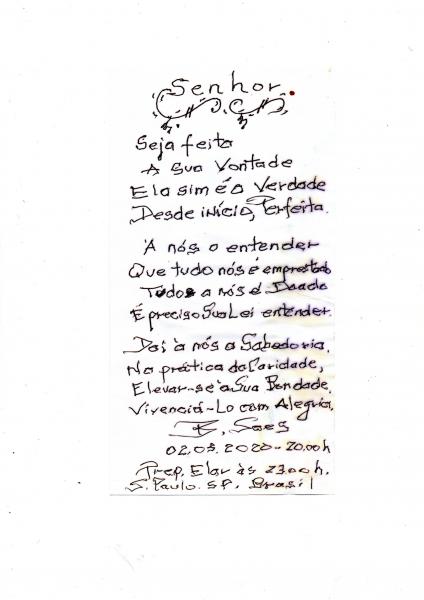 Senhor.
Seja feita
A Sua Vontade
Ela sim é a Verdade
Desde início, Perfeita.
A nós o entender
Que tudo nós é emprestado
Tudo a nós é Doado
É preciso Sua Lei entender.
Dai à nós a Sabedoria,
Na prática da Caridade,
Elevar-se à Sua Bondade,
Vivenciá-Lo com Alegria,
Saes
02.03.2020 - 20.00h
Prep. Elar às 23.00h.
S. Paulo. SP. Brasil